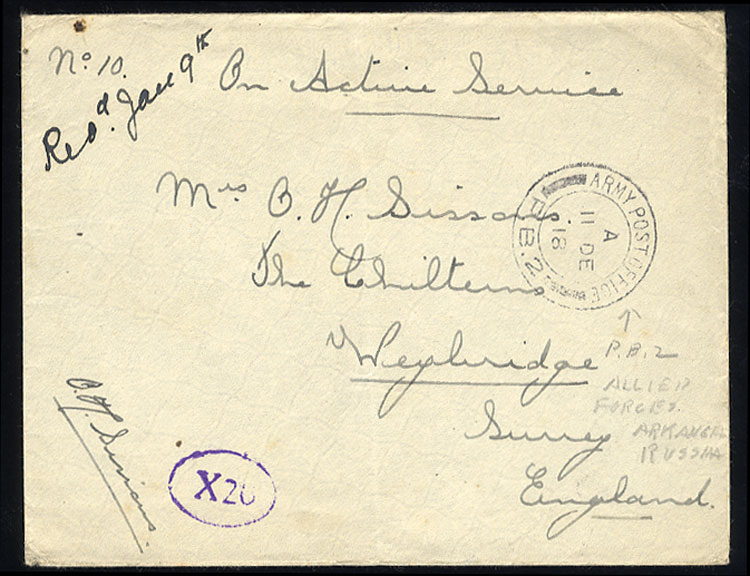 No. 10.
Recd. Jan 9th
On Active Service
Mrs O. H. Sissons.
The Chilterns
Weybridge
Surrey
England.
ARMY POST OFFICE
A
11 DE
18
P.B.2
P.B.2
ALLIED
FORCES.
ARKANGEL
RUSSIA
O. H. Sissons.